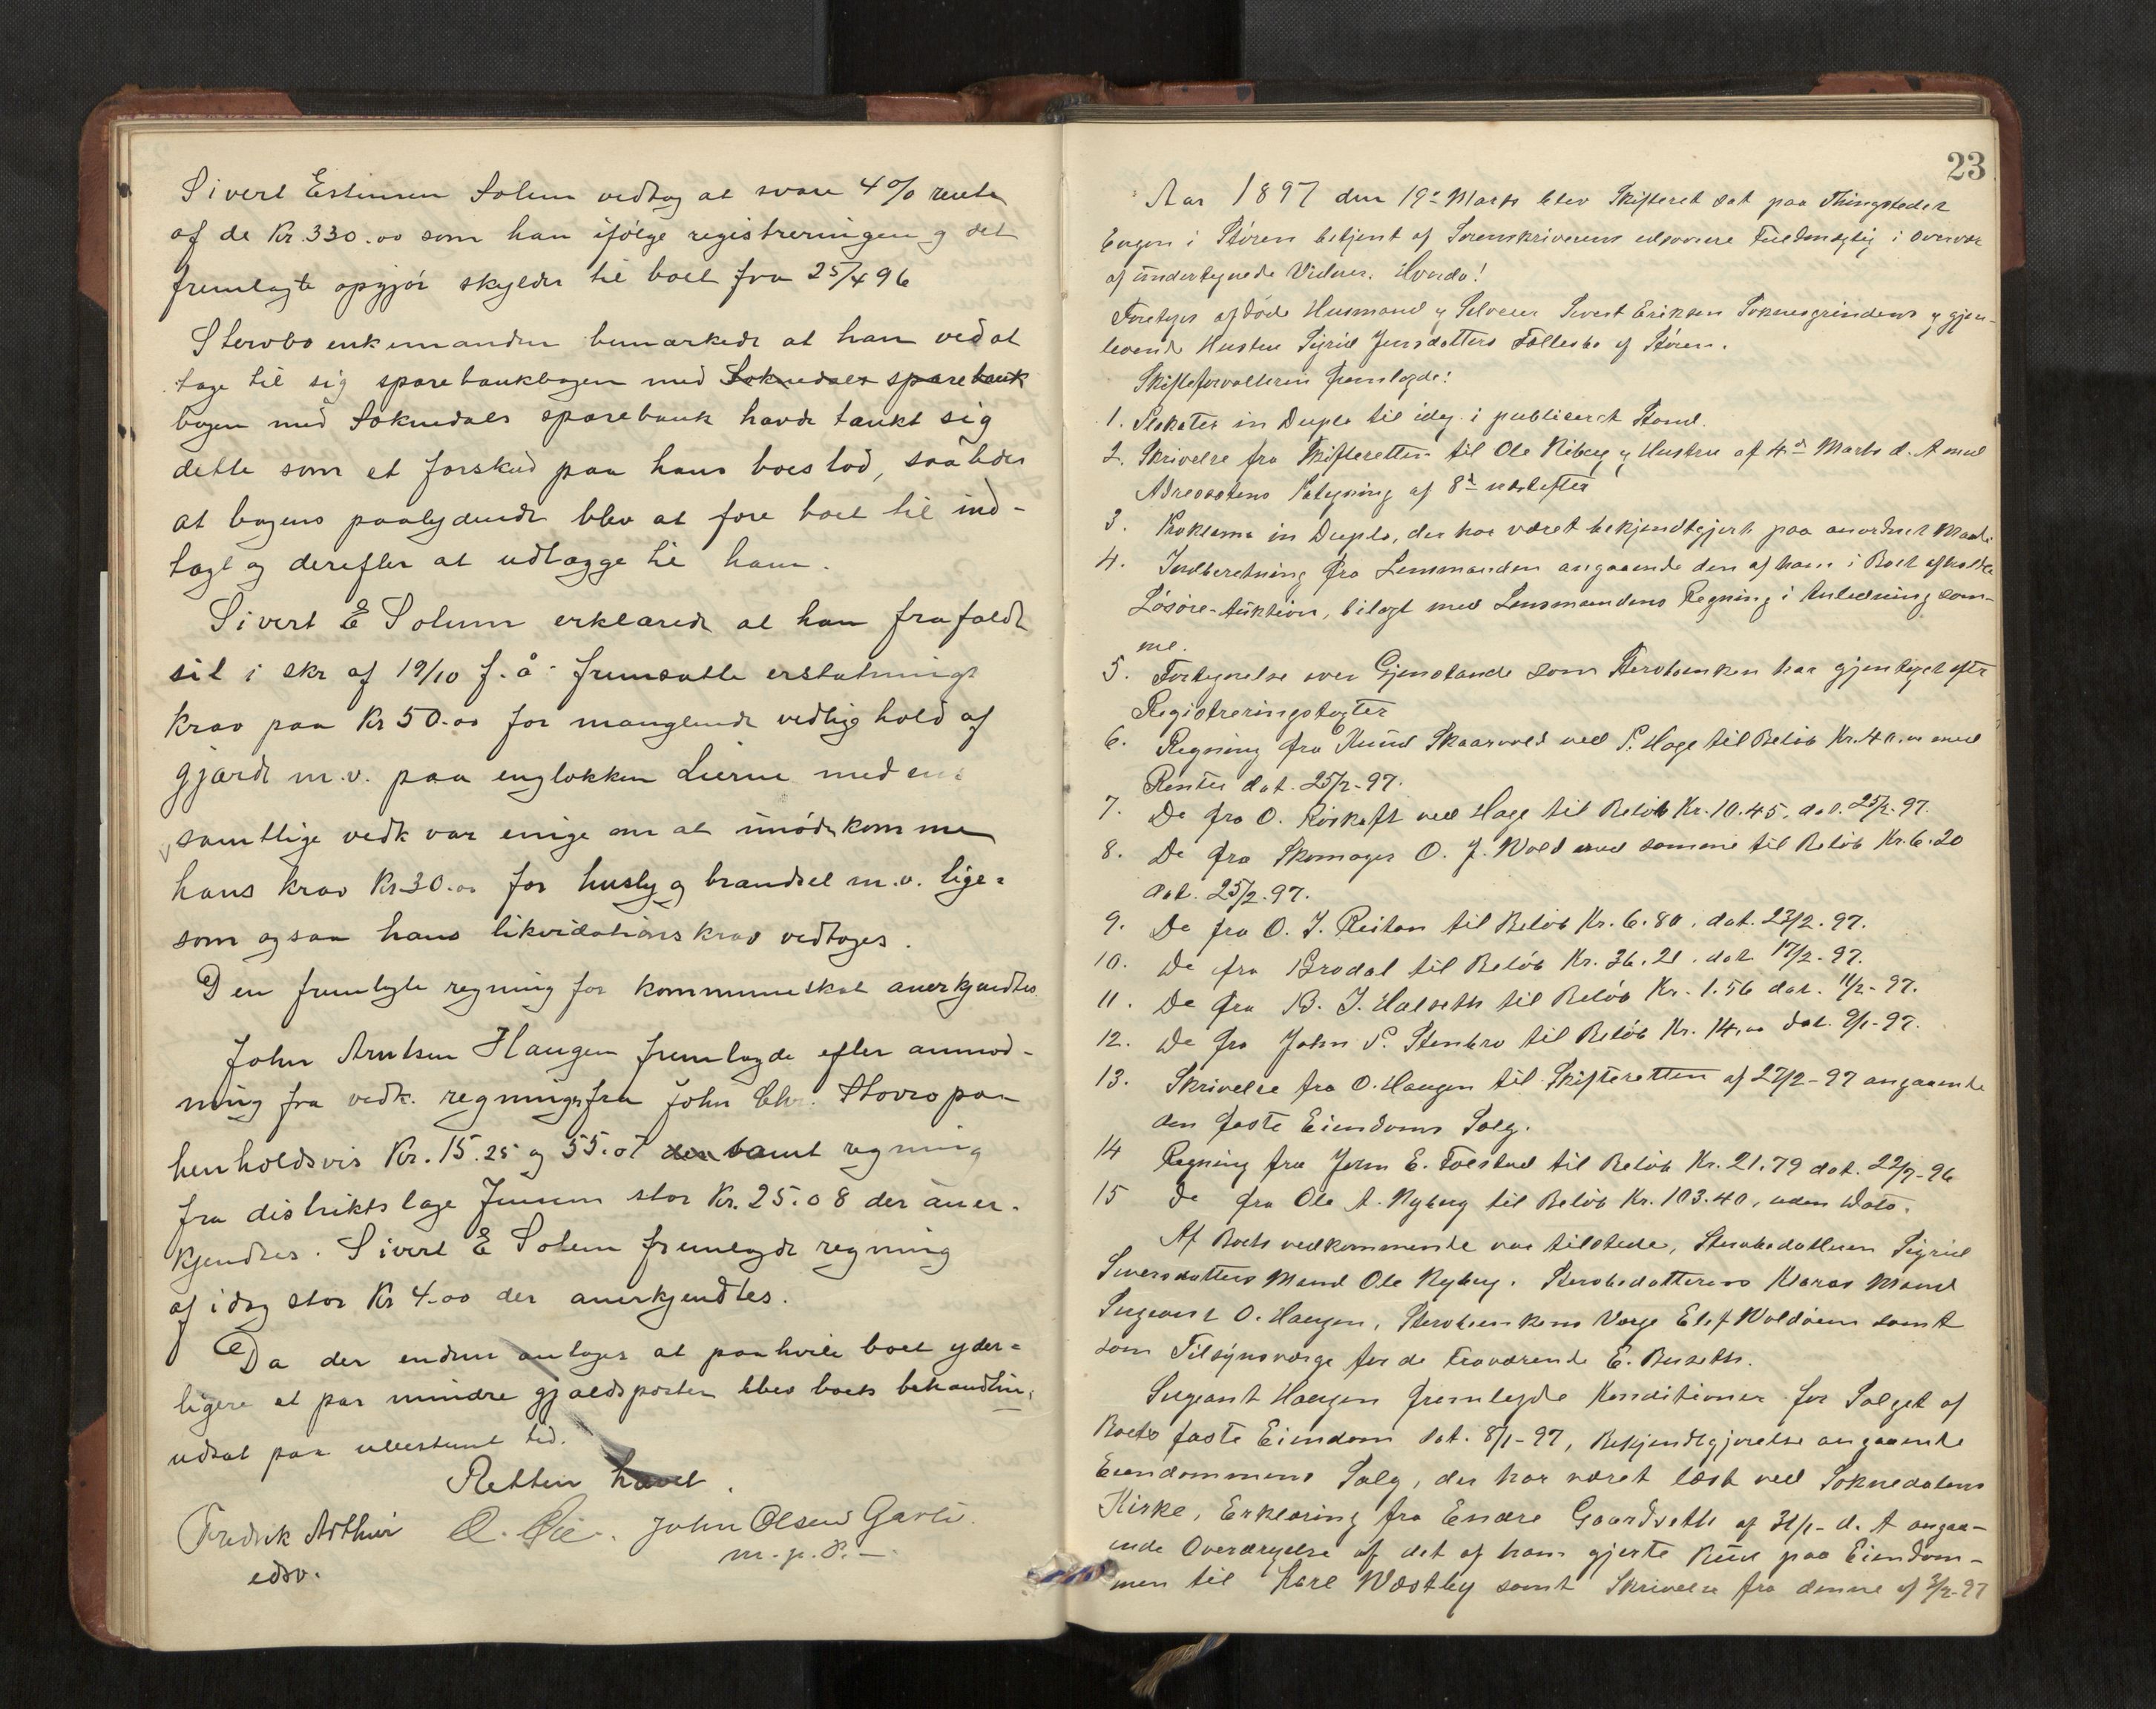 Sivert Estensen Solem vedtog at svare 4% rente
af de Kr. 330.00 som han ifølge registreringen og det
fremlagte opgjør skylder til boet fra 25/4 96
Stervbo enkemanden bemærkede at han ved at
tage til sig sparebankbogen med Soknedals sparebank
bogen med Soknedals sparebank havde tænkt sig
dette som et forskud paa hans boeslod, saaledes
at bogens paalydende blev at føre boet til ind-
tægt og derefter at udlægge til ham.
Sivert E Solum erklærede at han frafaldt
sit i skr af 19/10 f. å. fremsatte erstatnings
krav paa Kr 50.00 for manglende vedligehold af
gjærde m.v. paa engløkken Lierne med en
samtlige vedk var enige om at imødekomme
hans krav Kr. 30.00 for husly og brændsel m.v. lige-
som ogsaa hans likvidationskrav vedtoges.
Den fremlagte regning for kommuneskat anerkjendtes.
John Arntsen Haugen fremlagde efter anmod-
ning fra vedk. regninger fra John Chr. Storro paa
henholdsvis Kr. 15.25 og 55.07 samt regning
fra distriktslæge Jenssen stor Kr. 25.08 der aner-
kjendtes. Sivert E Solem fremlagde regning
af idag stor Kr 4.00 der anerkjendtes.
Da der endnu antoges at paahvile boet yder-
ligere et par mindre gjældsposter blev boets behandling
udsat paa ubestemt tid.
Retten hævet.
Fredrik Arthur O. Øie. John Olsen Garli.
edsv. m. p. P.
23
Aar 1897 den 19de Marts blev Skifteret sat paa Thingstedet
Engen i Støren betjent af Sorenskriverens edsvorne Fuldmægtig i Overvær
af undertegnede Vidner. Hvorda!
Foretoges afdøde Husmand og Selveier Sivert Eriksen Soknesgrindens og gjen-
levende Hustru Sigrid Jensdatters Fællesbo af Støren.
Skifteforvalteren fremlagde:
1. Plakater in Duplo til idag i publiceret Stand.
2. Skrivelse fra Skifteretten til Ole Nyberg og Hustru af 4de Marts d. A med
Adressatens Paategning af 8de næstefter
3. Proklama in Duplo, der har været bekjendtgjort paa anordnet Maade.
4. Indberetning fra Lensmanden angaaende den af ham i Boet afholdte
Løsøre-Auktion, bilagt med Lensmandens Regning i Anledning sam-
me.
5. Fortegnelse over Gjenstande som Stervboenken har gjentaget efter
Registreringstagter
6. Regning fra Knud Skaarvold ved S. Hage til Beløb Kr. 40.00 med
Renter dat. 25/2-97.
7. Do fra O. Røskaft ved Hage til Beløb Kr. 10.45. dat. 25/2-97.
8. Do fra Skomager O. J. Wold ved samme til Beløb Kr. 6.20
dat. 25/2.97.
9. Do fra O. J. Reitan til Beløb Kr. 6.80. dat. 23/2.97.
10. Do fra Brodal til Beløb Kr. 36.21. dat. 17/2-97.
11. Do fra B. J. Halseth til Beløb Kr. 1.56 dat. 11/2-97.
12. Do fra John S. Stenbro til Beløb Kr. 14.00 dat. 9/1-97.
13. Skrivelse fra O. Haugen til Skifteretten af 27/2-97 angaaende
den faste Eiendoms Salg.
14 Regning fra John E. Folstad til Beløb Kr. 21.79 dat. 22/7-96
15 Do fra Ole A. Nyberg til Beløb Kr. 103.40, uden Dato.
Af Boets vedkommende var tilstede, Stervbodatteren Sigrid
Siversdatters Mand Ole Nyberg. Stervbodatterens Maras Mand
Sergeant O. Haugen, Stervboenkens Værge Elef Woldøien samt
som Tilsynsværge for de fraværende E. Buseth.
Sergeant Haugen fremlagde Konditioner for Salget af
Boets faste Eiendom dat. 8/1-97, Bekjendtgjørelse angaaende
Eiendommens Salg, der har været læst ved Soknedalens
Kirke, Erklæring fra Endre Gaardseth af 31/1- d. A angaa-
ende Overdragelse af det af ham gjorte Bud paa Eiendom-
men til Karl Wæstby samt Skrivelse fra denne af 3/2-97